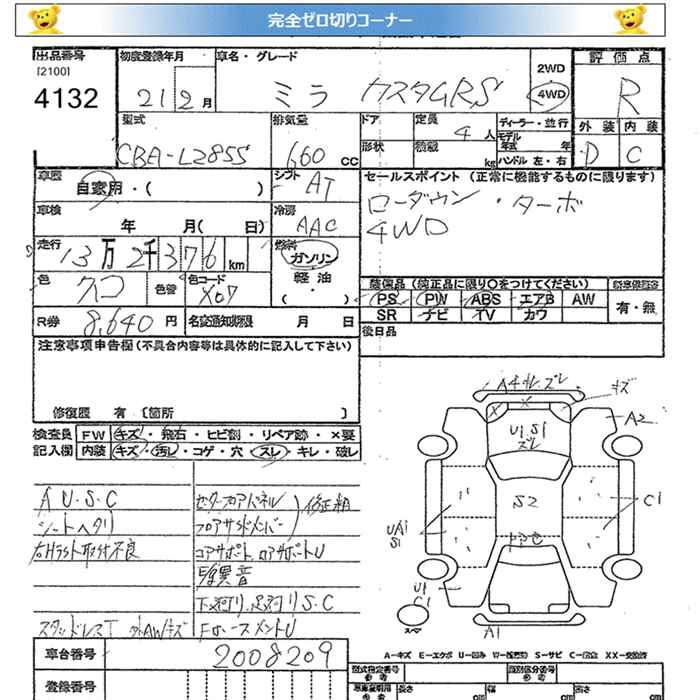 完全ゼロ切りコーナー
出品番号 初度登録年月 車名・グレード 2WD 評価点
[2100]
4132 21 2月 ミラ カスタムRS 4WD R
型式 排気量 ドア 定員 4人 ディーラー・並行 外装 内装
CBA-L285S 660 cc 形状 積載 kg モデル年式 年 ハンドル 左・右 D C
車歴 自家用・( ) シフト AT セールスポイント (正常に機能するものに限ります)
車検 年 月( 日) 冷房 AAC ローダウン・ターボ
4WD
走行 13万2千376 km 燃料 ガソリン
軽油
・( )
色 クロ 色替 色コード X07 装備品 (純正品に限り○をつけてください)
PS PW ABS エアB AW 有・無
R券 8,640円 名変通知期限 月 日 SR ナビ TV カワ
注意事項申告欄(不具合内容等は具体的に記入して下さい) 後日品
修復歴 有 [箇所 ]
検査員 FW キズ・飛石・ヒビ割・リペア跡・×要
記入欄 内装 キズ・汚レ・コゲ・穴・スレ・キレ・破レ
A U.S.C
シートヘタリ
センターフロアパネル
フロアサイドメンバー
修正有
コアサポート
異音
S.C
スタッドレス
キズ
A2
U1 S1
ズレ
S2
C1
UA1
S1
U1
C1
スペア
A1
A-キズ E-エクボ U-凹み W-波形 S-サビ C-腐食 XX-交換済
車台番号 2008209 型式指定番号 類別区分番号
登録番号 長さ cm 幅 cm 高さ cm